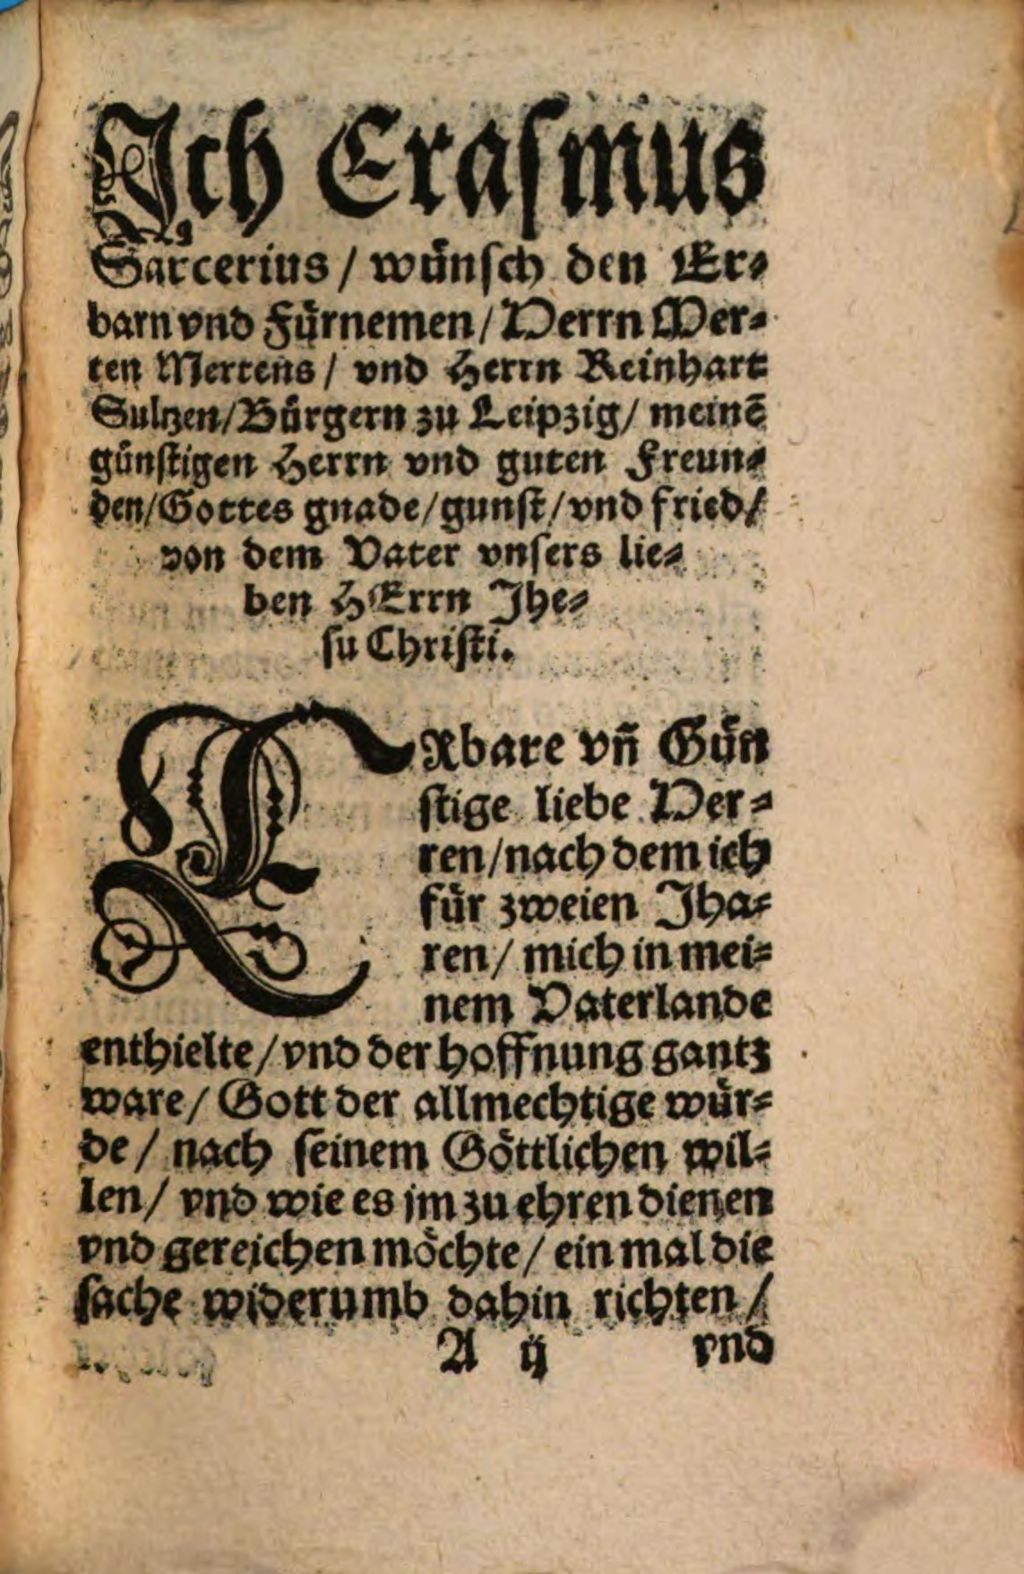 Ich Erasmus
Sarcerius / wünsch den Er⸗
barn vnd Fürnemen / Herrn Mer⸗
ten Mertens / vnd Herrn Reinhart
Sultzen / Bürgern zu Leipzig / meinē
günstigen Herrn vnd guten Freun⸗
den / Gottes gnade / gunst / vnd fried /
von dem Vater vnsers lie⸗
ben HErrn Jhe⸗
su Christi.
ERbare vñ Gün
stige liebe Her⸗
ren / nach dem ich
für zweien Jha⸗
ren / mich in mei⸗
nem Vaterlande
enthielte / vnd der hoffnung gantz
ware / Gott der allmechtige wür⸗
de / nach seinem Göttlichen wil⸗
len / vnd wie es jm zu ehren dienen
vnd gereichen möchte / ein mal die
sache widerumb dahin richten /
A ij vnd